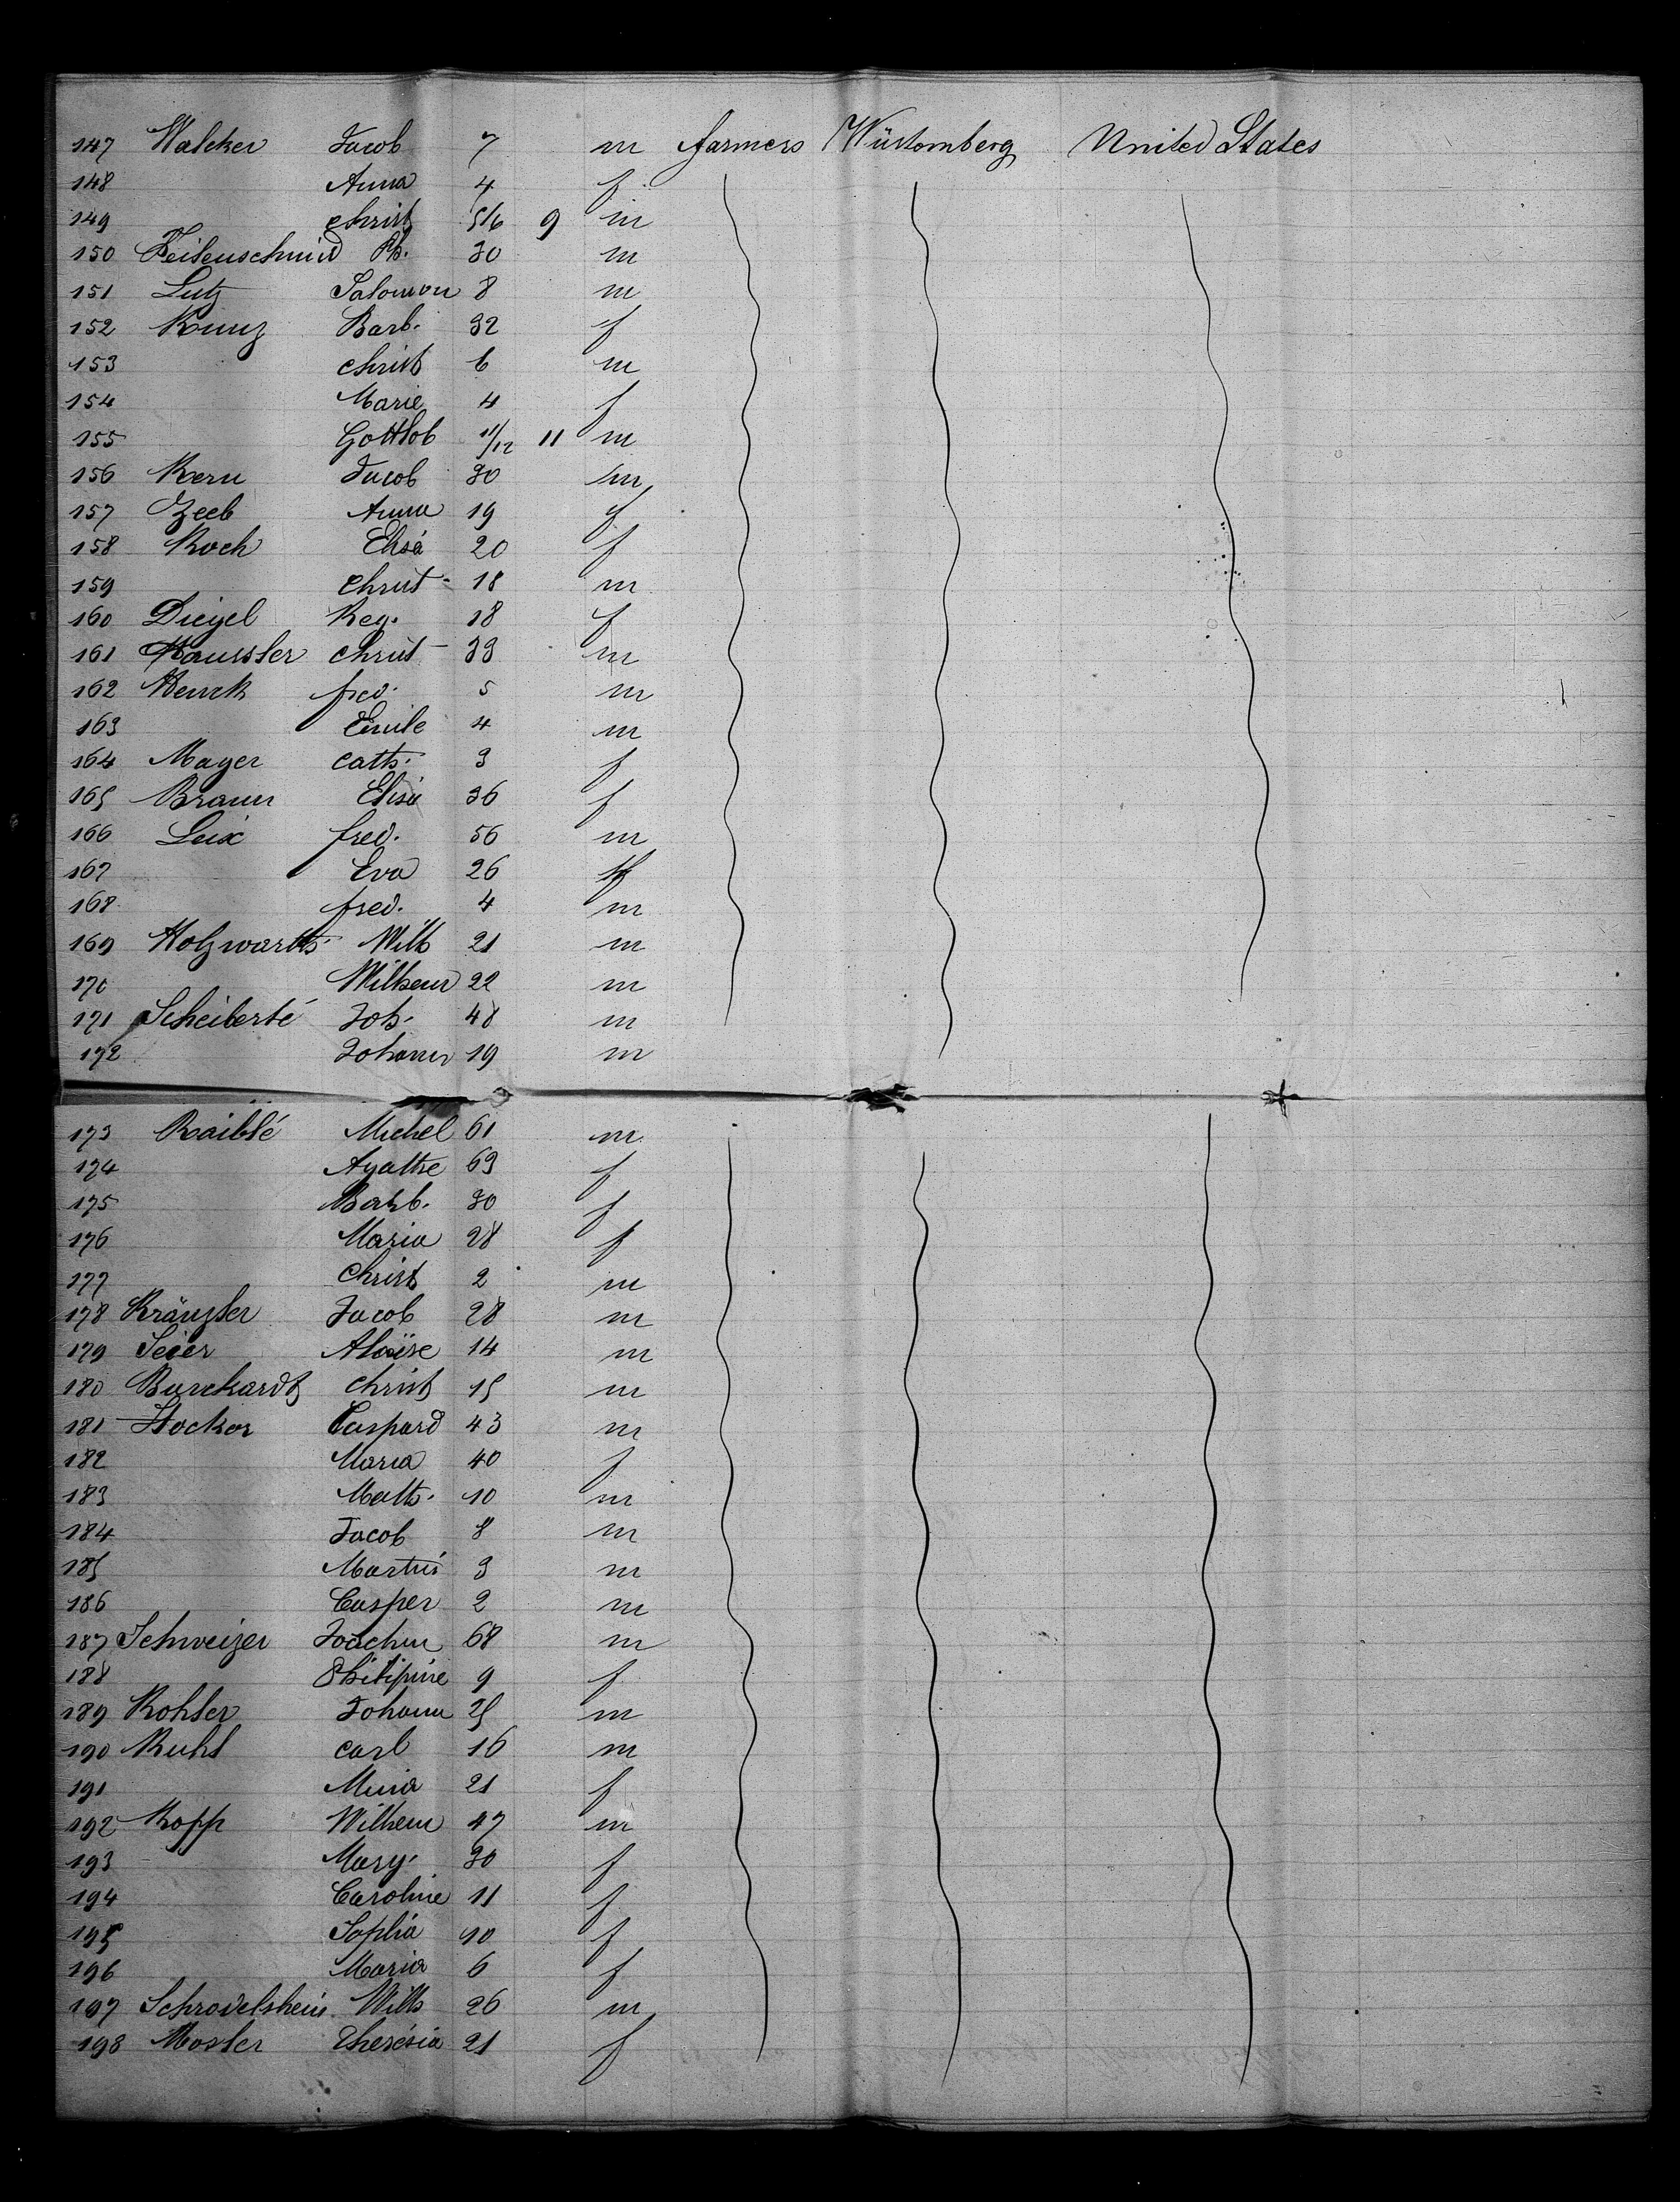 147 Walcker Jacob 7 m farmers Würtemberg United States
148 Anna 4 f
149 Christ 5/6 9 m
150 Zeilenschmid Ph. 30 m
151 Lutz Salomon 8 m
152 Kunz Barb. 32 f
153 Christ 6 m
154 Marie 4 f
155 Gottlob 11/12 11 m
156 Kern Jacob 30 m
157 Zeeb Anna 19 f
158 Koch Elisa 20 f
159 Christ 18 m
160 Diegel Reg. 18 f
161 Haussler Christ 33 m
162 Kenck fred. 5 m
163 Emile 4 m
164 Mayer Cath. 3 f
165 Braun Elisa 36 f
166 Leix fred. 56 m
167 Eva 26 f
168 fred. 4 m
169 Holzwarth Wilh 21 m
170 Wilhem 22 m
171 Scheiberlé Joh. 48 m
172 Johann 19 m
173 Raiblé Michel 61 m
174 Agathe 63 f
175 Barb. 30 f
176 Maria 28 f
177 Christ 2 m
178 Kränzler Jacob 28 m
179 Seier Aloïse 14 m
180 Burckardt Christ 15 m
181 Stocker Caspard 43 m
182 Maria 40 f
183 Math. 10 m
184 Jacob 8 m
185 Martin 3 m
186 Casper 2 m
187 Schweizer Joachim 68 m
188 Philipine 9 f
189 Kohler Johann 25 m
190 Kuhl Carl 16 m
191 21 f
192 Kopp Wilhem 47 m
193 Mary. 30 f
194 Caroline 11 f
195 Sophia 10 f
196 Maria 6 f
197 Schrodelsheim Wilh 26 m
198 Mosler Therésia 21 f